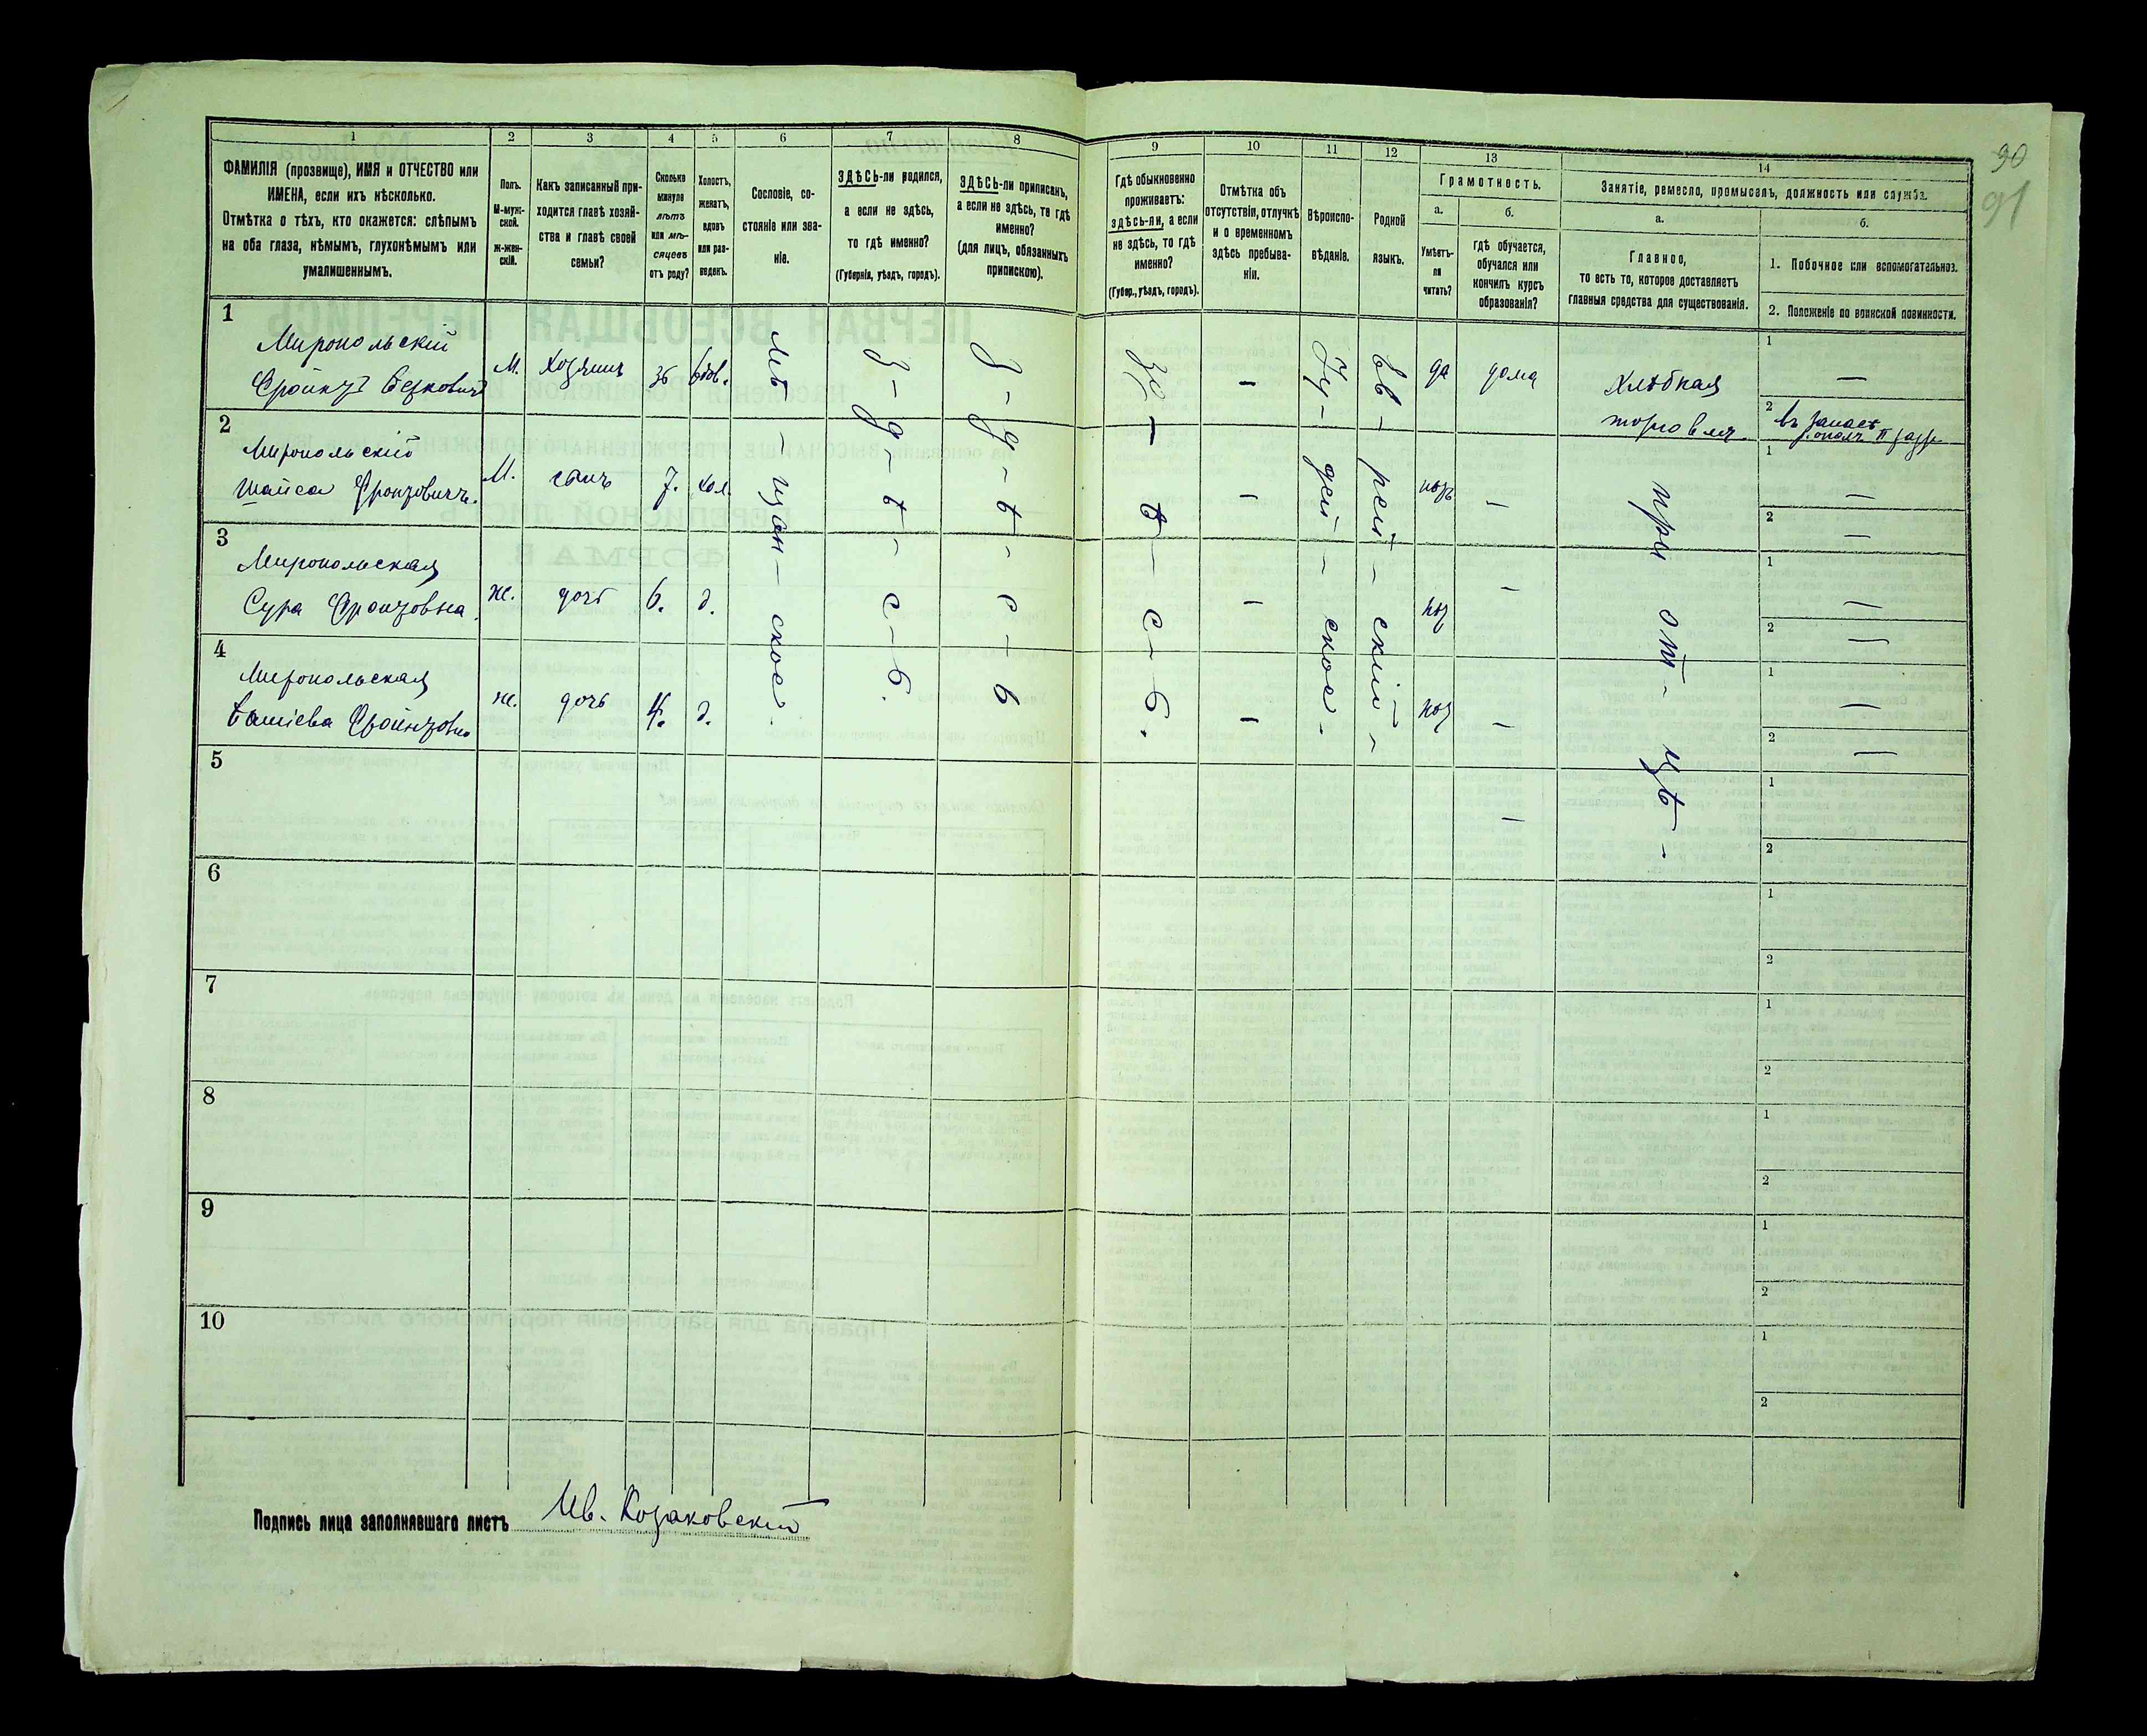 90
91
1
ФАМИЛІЯ (прозвище), ИМЯ и ОТЧЕСТВО или
ИМЕНА, если ихъ нѣсколько.
Отмѣтка о тѣхъ, кто окажется: слѣпымъ
на оба глаза, нѣмымъ, глухонѣмымъ или
умалишеннымъ.
2
Полъ.
М-муж-
ской.
ж-жен-
скій.
3
Какъ записанный при-
ходится главѣ хозяй-
ства и главѣ своей
семьи?
4
Сколько
минуло
лѣтъ
или мѣ-
сяцевъ
отъ роду?
5
Холостъ,
женатъ,
вдовъ
или раз-
веденъ.
6
Сословіе, со-
стояніе или зва-
ніе.
7
ЗДѢСЬ-ли родился,
а если не здѣсь,
то гдѣ именно?
(Губернія, уѣздъ, городъ).
8
ЗДѢСЬ-ли приписанъ,
а если не здѣсь, то гдѣ
именно?
(для лицъ, обязанныхъ
припискою).
9
Гдѣ обыкновенно
проживаетъ:
здѣсь-ли, а если
не здѣсь, то гдѣ
именно?
(Губер., уѣздъ, городъ).
10
Отмѣтка объ
отсутствіи, отлучкѣ
и о временномъ
здѣсь пребыва-
ніи.
11
Вѣроиспо-
вѣданіе.
12
Родной
языкъ.
13
Грамотность.
а.
Умѣетъ-
ли
читать?
б.
гдѣ обучается,
обучался или
кончилъ курсъ
образованія?
14
Занятіе, ремесло, промыселъ, должность или служба.
а.
Главное,
то есть то, которое доставляетъ
главныя средства для существованія.
б.
1. Побочное или вспомогательное.
2. Положеніе по воинской повинности.
1
Миропольскій
Фроинзъ Берковичъ
М. хозяинъ 36 вдов.
мѣ-щан-ское.
з-д-ѣ-с-ь.
з-д-ѣ-с-ь
зд-ѣ-с-ь.
—
Іу-дей-ское-
ев-рей-скій-
да дома
Хлѣбная
торговля.
1 —
2 въ запасѣ
II разр.
2
Миропольскій
Шайса Фронзовичъ.
М. сынъ 7. хол.
—
нѣтъ —
при от-цѣ-
1 —
2 —
3
Миропольская
Сура Фронзовна.
ж. дочь 6. д.
—
нѣт —
1 —
2 —
4
Миропольская
Фроинзовна
ж. дочь 4. д.
—
нѣт —
1 —
2 —
5
—
1
2
6
1
2
7
1
2
8
1
2
9
1
2
10
1
2
Подпись лица заполнявшаго листъ Ив. Козаковскій